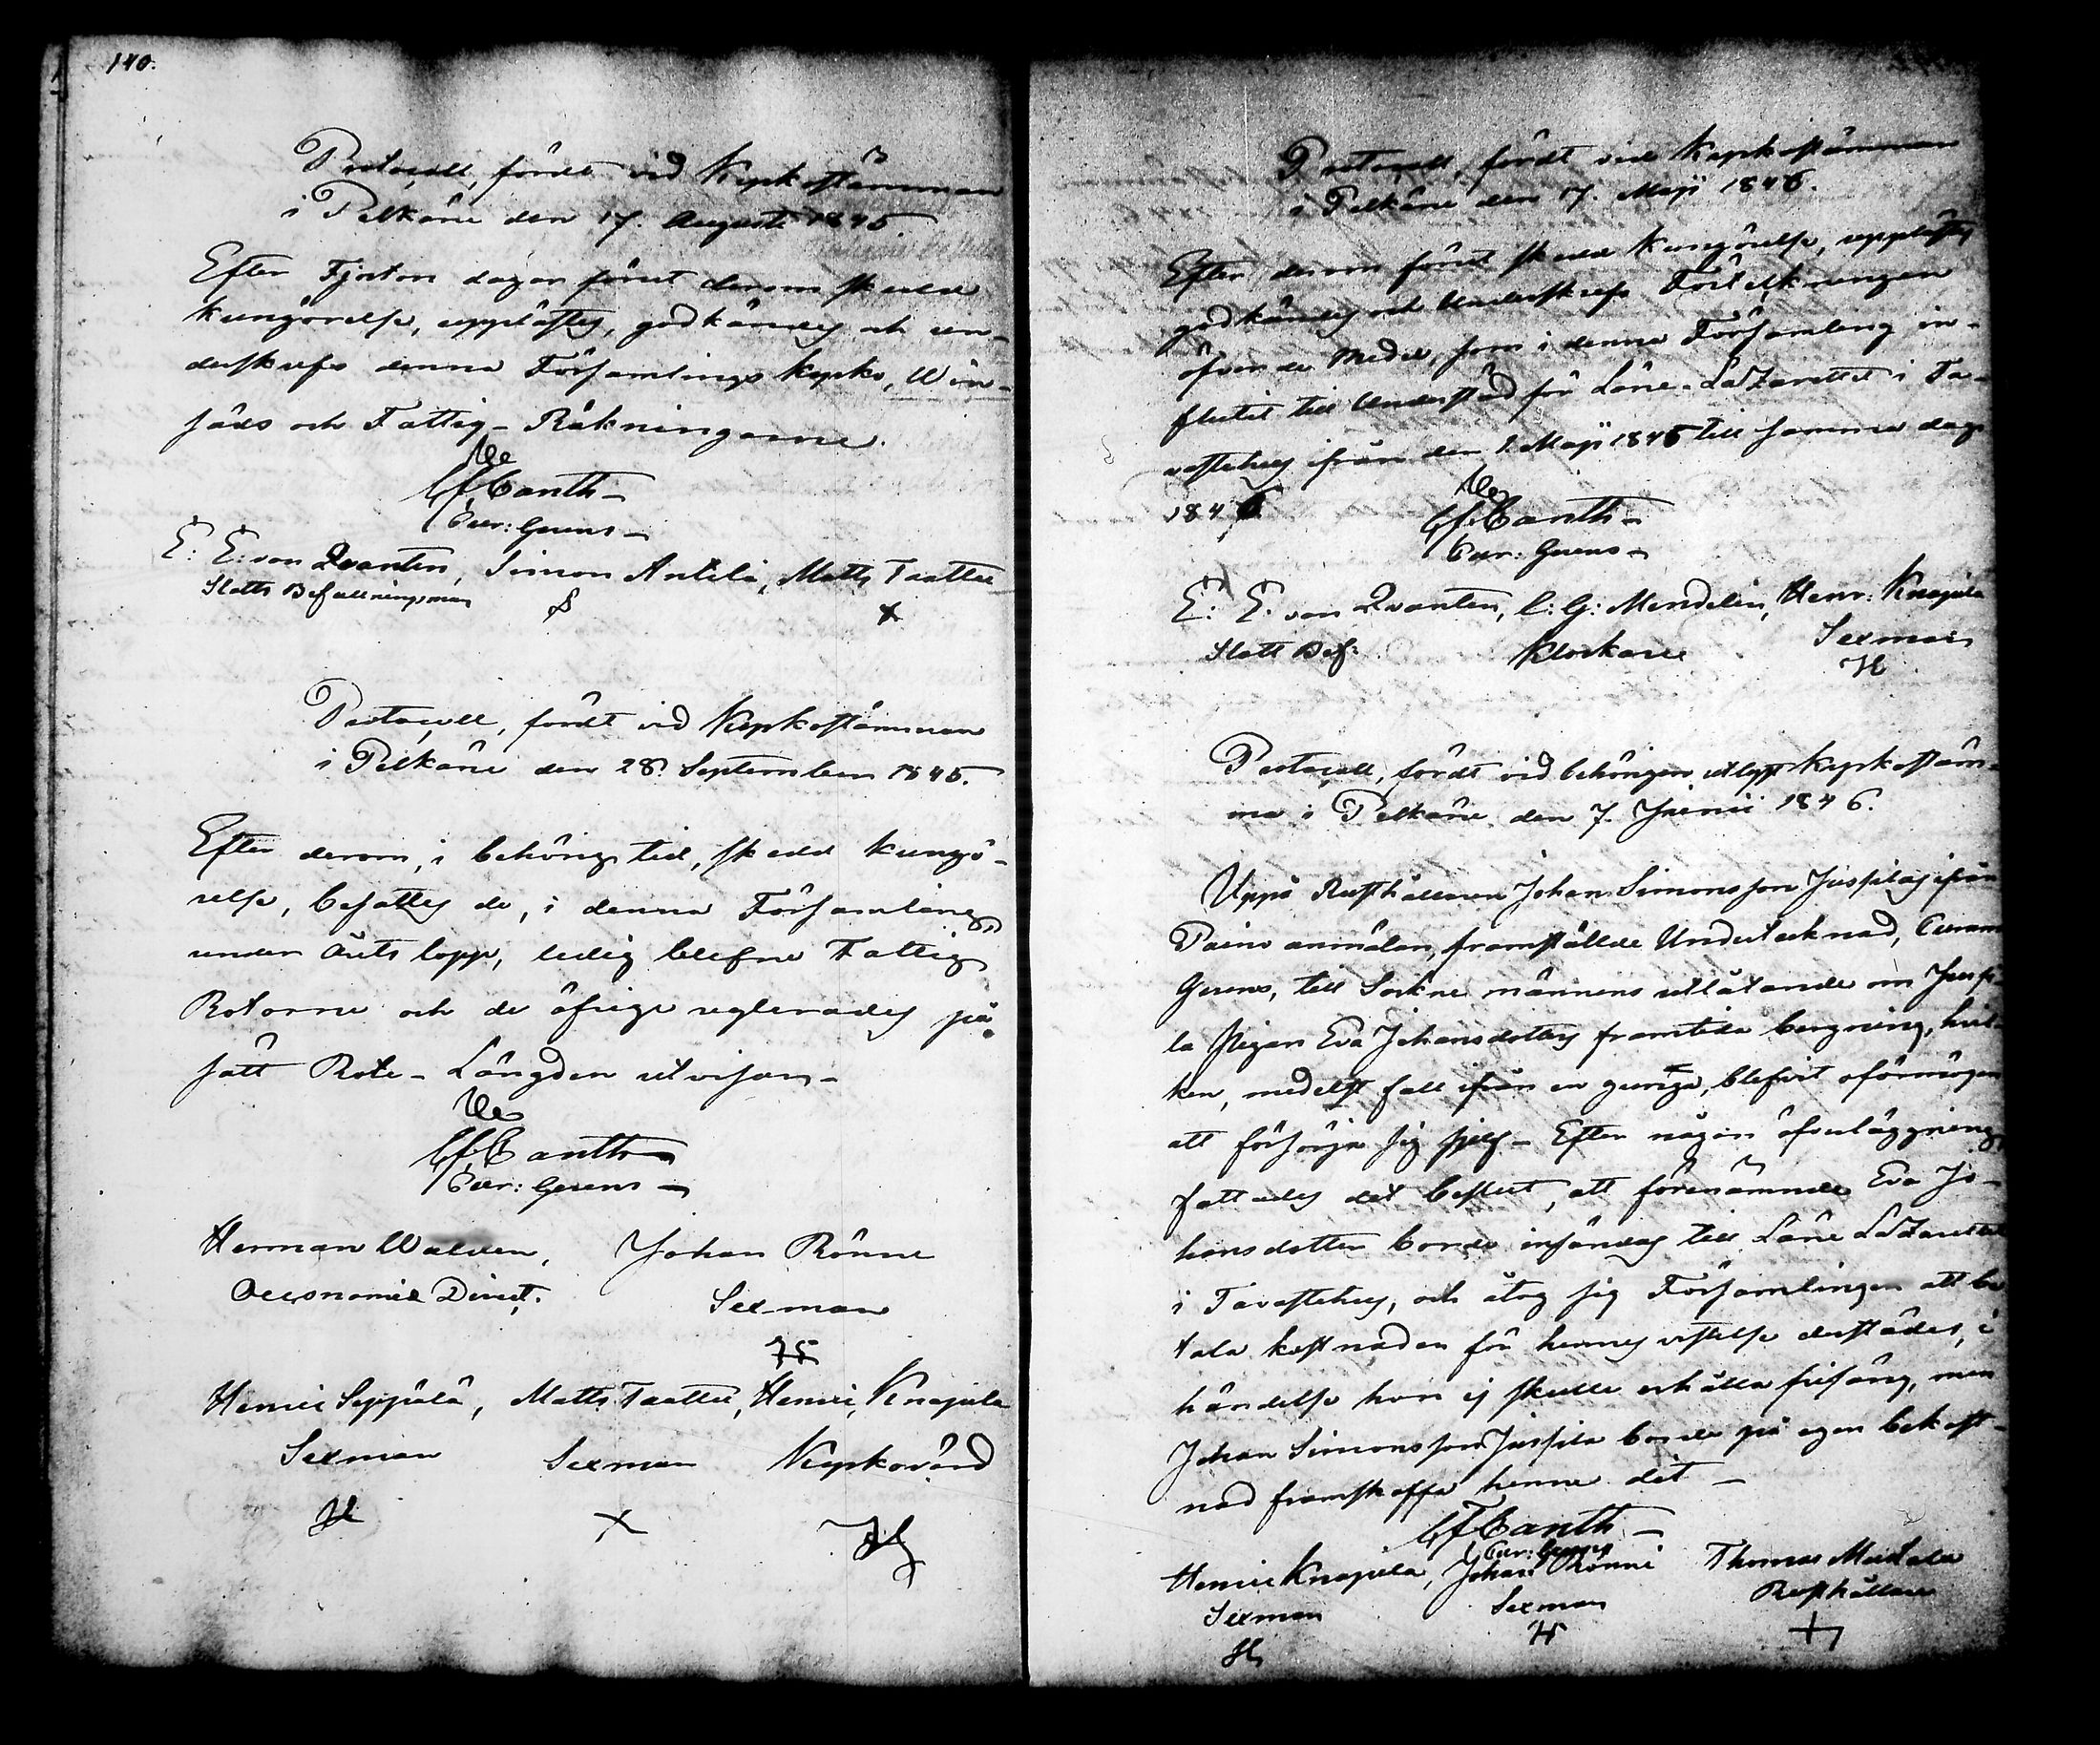 140.
Protocoll, fördt vid Kyrkostämman
i Pelkäne den 17. Augusti 1845.
Efter Fjorton dagar förut derom skedd
kungörelse, upplästes, godkändes och un-
derskrefs denna Församlings Kyrko, Win-
säds och Fattig-Räkningarne.
CfCanth
Cur: Gerens
E: E: von Qvanten, Simon Antila, Matts Taattu
Slotts Befallningsman
Protocoll, fördt vid Kyrkostämman
i Pelkäne den 28. September 1845.
Efter derom, i behörig tid, skedd kungö-
relse, besattes de, i denna Församling
under årets lopp, ledig blefne Fattig
Rotarne och de öfrige reglerades på
sätt Rote-Längden utvisar
CfCanth
Cur: Gerens
Herman Walden, Johan Rönni
Oeconomie Direct. Sexman
Henric Seppälä, Matts Taattu, Henric Knaapila
Sexman Sexman Kyrkovärd
Protocoll, fördt vid Kyrkostämman
i Pelkäne den 17. Maji 1846.
Efter derom förut skedd kungörelse, upplästes
godkändes och Underskrefs Förteckningen
öfver de Medel, som i denna Församling in-
flutit till Understöd för Läne-Lazarettet i Ta-
vastehus ifrån den 1. Maji 1845 till samma dag
1846
CfCanth
Cur: Gerens
E: E. von Qvanten, C: G: Mendelin, Henr: Knaapila
Slotts Bef: Klockare Sexman
Protocoll, fördt vid behörigen utlyst Kyrkostäm-
ma i Pelkäne den 7. Junii 1846.
Uppå Rusthållaren Johan Simonsson Jussilas ifrån
Paino anmälan, framställde Undertecknad, Curam
Gerens, till Sockne männens utlåtande om Jussi-
la Pigan Eva Johansdotters framtida bergning, hvil-
ken, medelst fall ifrån en gunga, blefvit oförmögen
att försörja sig sjelf- Efter någon öfverläggning,
fattades det beslut, att förenämnde Eva Jo-
hansdotter borde insändas till Läne Lazarettet
i Tavastehus, och åtog sig Församlingen att be
tala kostnaden för hennes vistelse derstädes, i
händelse hon ej skulle erhålla frisäng, men
Johan Simonsson Jussila borde på egen bekost-
nad framskaffa henne dit
CfCanth
Cur: Gerens
Henric Knaapila, Johan Rönni Thomas Mattala
Sexman Sexman Rusthållare